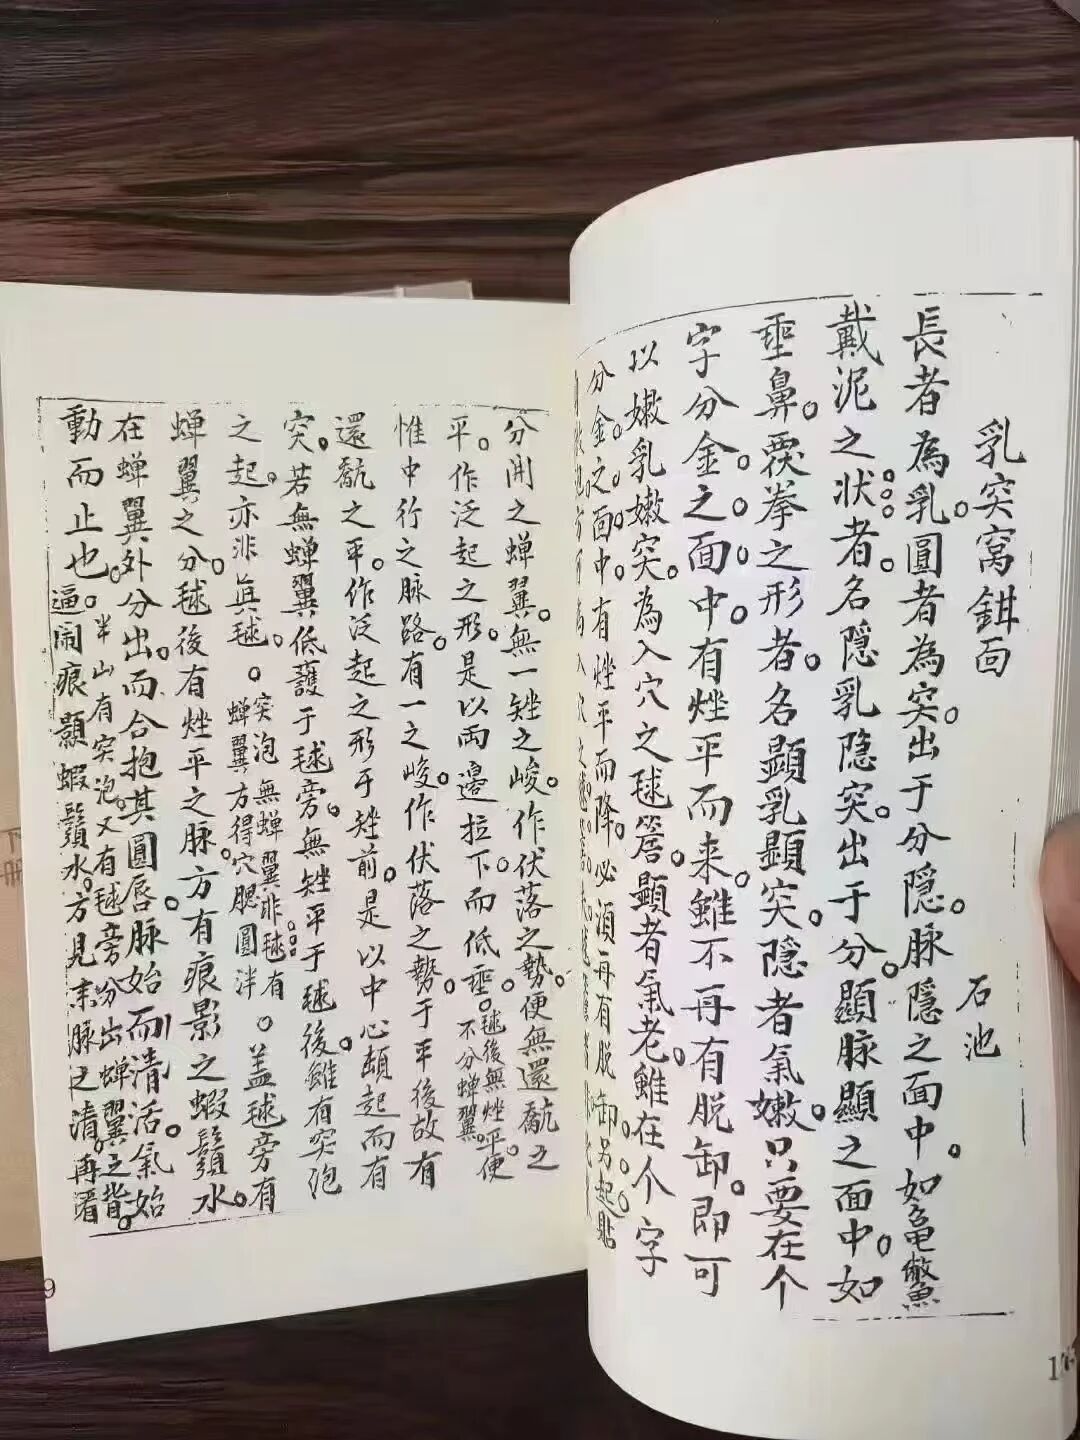 乳突窩鉗面
石池
長者為乳。圓者為突。出于分隱。脉隱之面中。如龜鱉
戴泥之状者。名隱乳隐突。出于分。顯脉顯之面中。如
垂鼻。覆拳之形者。名顯乳顕突。隐者氣嫩。只要在个
字分金。之面中。有矬平而来。雖不再有脱卸。即可
以嫩乳嫩突。為入穴之毬簷。顕者氣老。雖在个字
分金。之面。中。有矬平而降。必須再有脱卸。另起。貼
分開之蝉翼。無一矬之峻。作伏落之勢。便無還氣之
平。作泛起之形。是以両邉拉下。而低垂。毬後無矬平便
不分蝉翼。
惟中行之脉路。有一之峻。作伏落之勢。于平後故有
還氣之平。作泛起之形于矬前。是以中心䫜起而有
突。若無蝉翼低護于毬旁。無矬平于毬後。雖有突泡
之起。亦非真毬。突泡無蝉翼非毬。有
蝉翼方得穴腮圓泮。盖毬旁有
蝉翼之分。毬後有矬平之脉。方有痕影之蝦鬚水。
在蝉翼外分出。而合抱其圓唇。脉始而清活。氣始
動而止也。半山有突泡。又有毬旁分出蝉翼之背。
逼闹痕顯蝦鬚水。方見来脉之清。再看
9